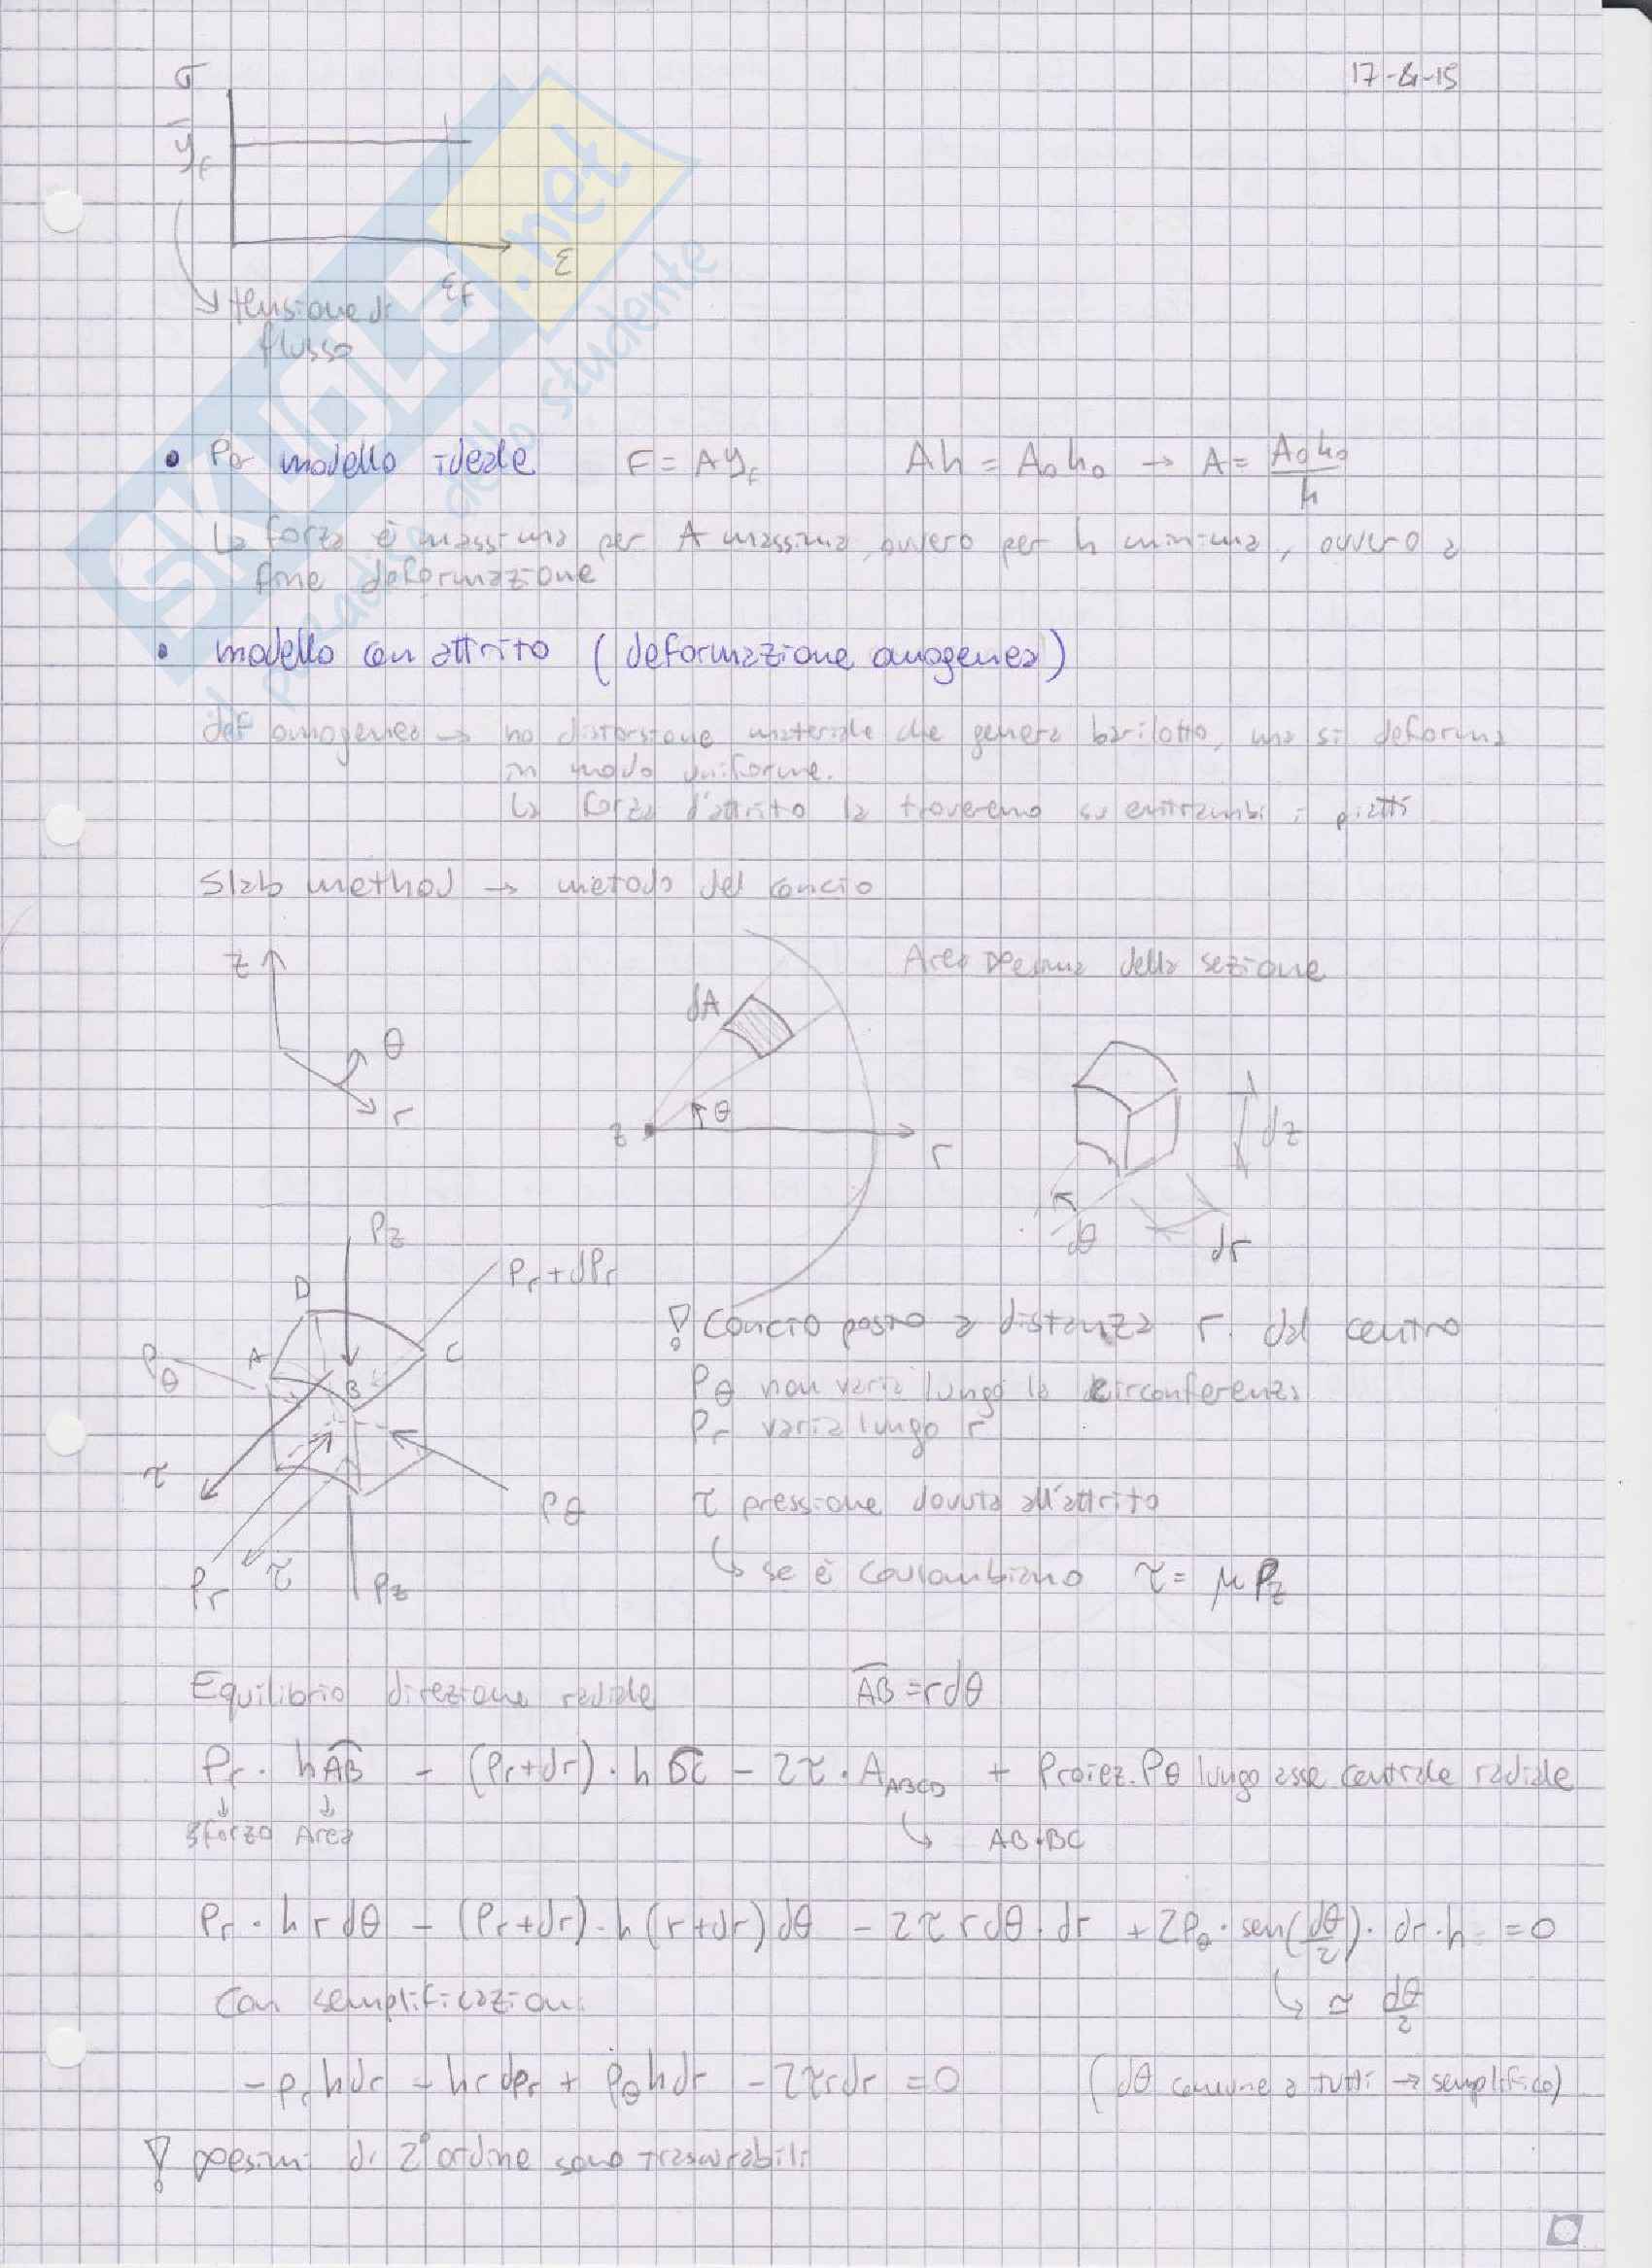 17-4-15
σ
ȳf
ε
εf
tensione di
flusso
SKUOLA.net
il paradiso dello studente
• Per modello ideale F = Ayf Ah = A₀h₀ → A = A₀h₀/h
La forza è massima per A massima, ovvero per h minima, ovvero a
fine deformazione
• modello con attrito (deformazione omogenea)
def omogenea → no distorsione materiale che genera barilotto, ma si deforma
in modo uniforme.
La forza d'attrito la troveremo su entrambi i piatti
Slab method → metodo del concio
z
θ
r
dA
z
θ
r
Area della sezione
dz
dθ
dr
Pz
Pr + dPr
D
A
C
B
Pθ
τ
Pθ
Pr
τ
Pz
! Concio posto a distanza r dal centro
Pθ non varia lungo la circonferenza
Pr varia lungo r
τ pressione dovuta all'attrito
↳ se è coulombiano τ = μPz
Equilibrio direzione radiale AB = rdθ
Pr · hAB - (Pr+dr) · h DC - 2τ · AABCD + Proiez. Pθ lungo asse centrale radiale
↓ ↓
sforzo Area
↳ AB·BC
Pr · h r dθ - (Pr+dr) · h (r+dr) dθ - 2τ r dθ · dr + 2Pθ · sen(dθ/2) · dr · h = 0
↳ ≃ dθ/2
Con semplificazioni
- pr h dr - h r dpr + pθ h dr - 2τ r dr = 0 (dθ comune a tutti → semplifico)
! di 2° ordine sono trascurabili